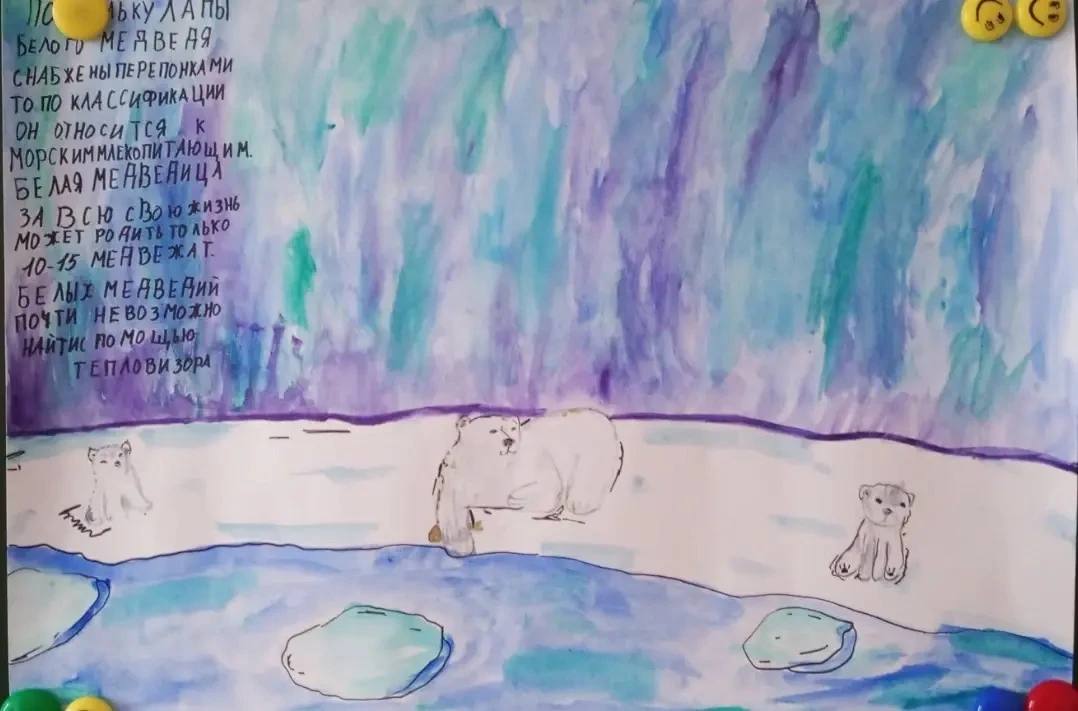 ЛАПЫ
БЕЛОГО МЕДВЕДЯ
СНАБЖЕНЫ ПЕРЕПОНКАМИ
ТО ПО КЛАССИФИКАЦИИ
ОН ОТНОСИТСЯ К
МОРСКИМ МЛЕКОПИТАЮЩИМ.
БЕЛАЯ МЕДВЕДИЦА
ЗА ВСЮ СВОЮ ЖИЗНЬ
МОЖЕТ РОДИТЬ ТОЛЬКО
10-15 МЕДВЕЖАТ.
БЕЛЫХ МЕДВЕДИЙ
ПОЧТИ НЕВОЗМОЖНО
НАЙТИ С ПОМОЩЬЮ
ТЕПЛОВИЗОРА